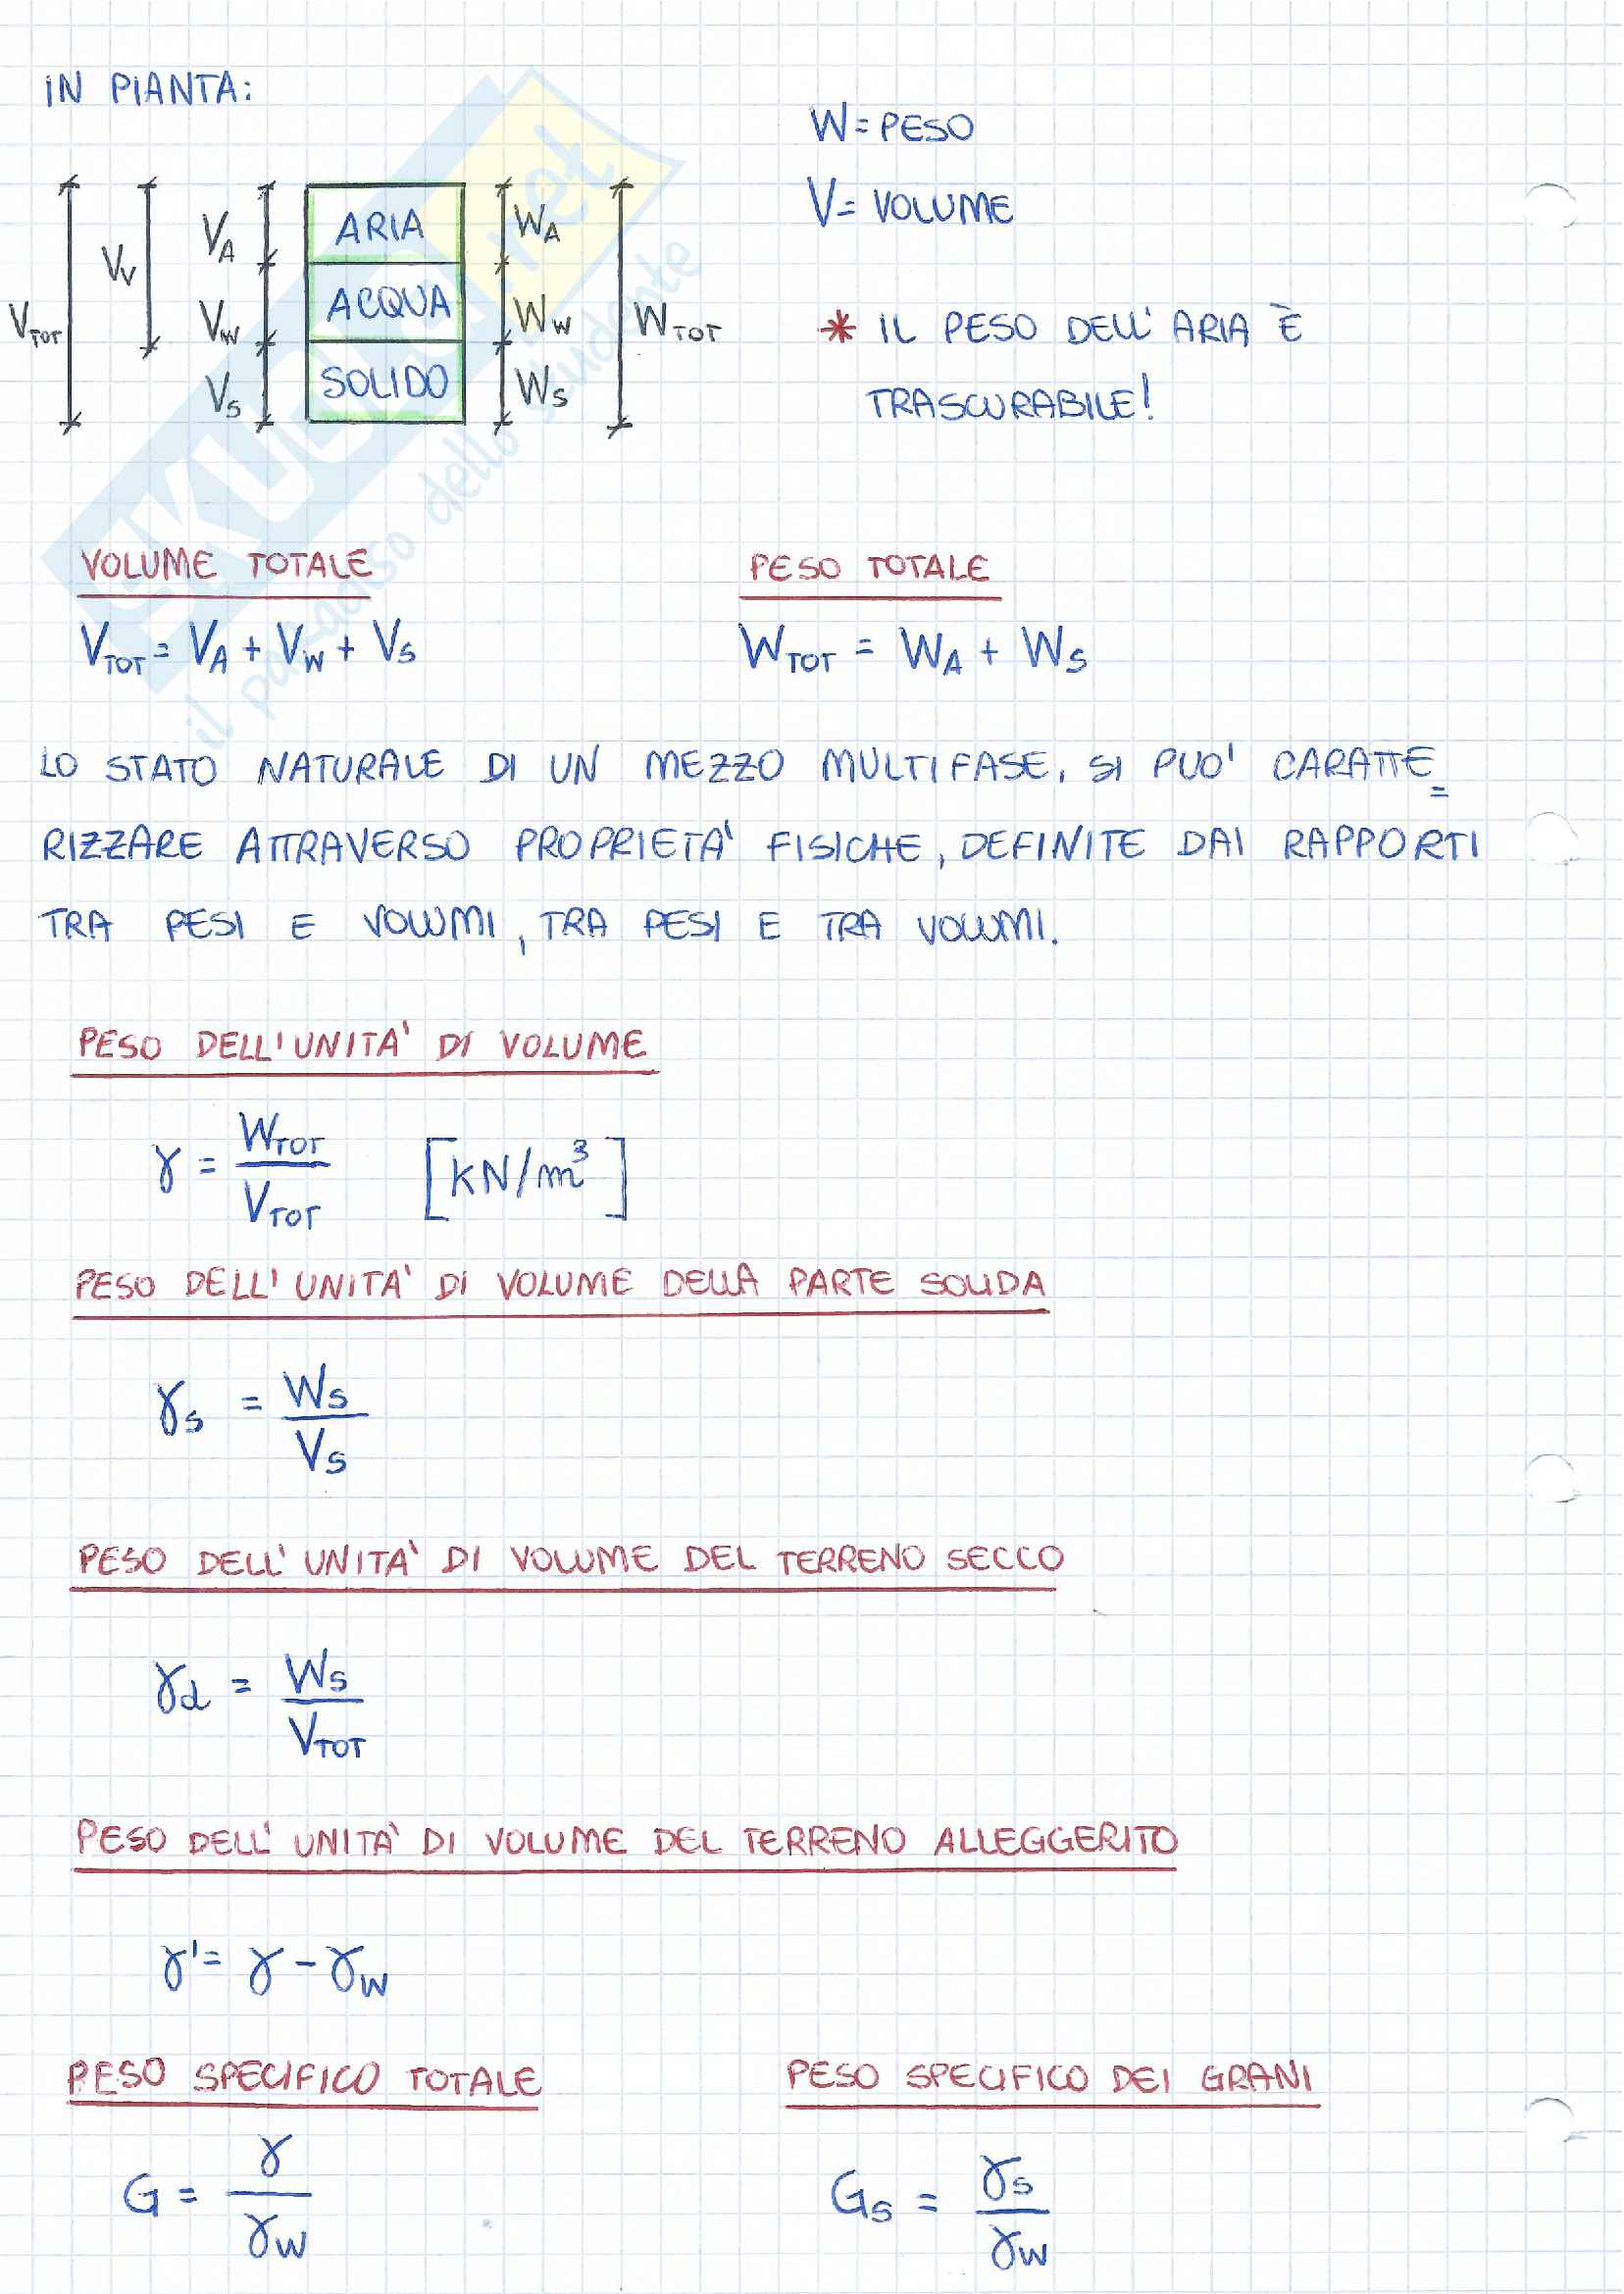 IN PIANTA:
W = PESO
V = VOLUME
V_TOT V_V V_A ARIA W_A
V_W ACQUA W_W W_TOT
V_S SOLIDO W_S
* IL PESO DELL' ARIA È
TRASCURABILE!
VOLUME TOTALE
V_TOT = V_A + V_W + V_S
PESO TOTALE
W_TOT = W_A + W_S
LO STATO NATURALE DI UN MEZZO MULTIFASE, SI PUO' CARATTE=
RIZZARE ATTRAVERSO PROPRIETA' FISICHE, DEFINITE DAI RAPPORTI
TRA PESI E VOLUMI, TRA PESI E TRA VOLUMI.
PESO DELL'UNITA' DI VOLUME
γ = W_TOT / V_TOT [kN/m³]
PESO DELL' UNITA' DI VOLUME DELLA PARTE SOLIDA
γ_S = W_S / V_S
PESO DELL' UNITA' DI VOLUME DEL TERRENO SECCO
γ_d = W_S / V_TOT
PESO DELL' UNITA' DI VOLUME DEL TERRENO ALLEGGERITO
γ' = γ - γ_W
PESO SPECIFICO TOTALE
G = γ / γ_W
PESO SPECIFICO DEI GRANI
G_S = γ_S / γ_W
SKUOLA.net
il paradiso dello studente